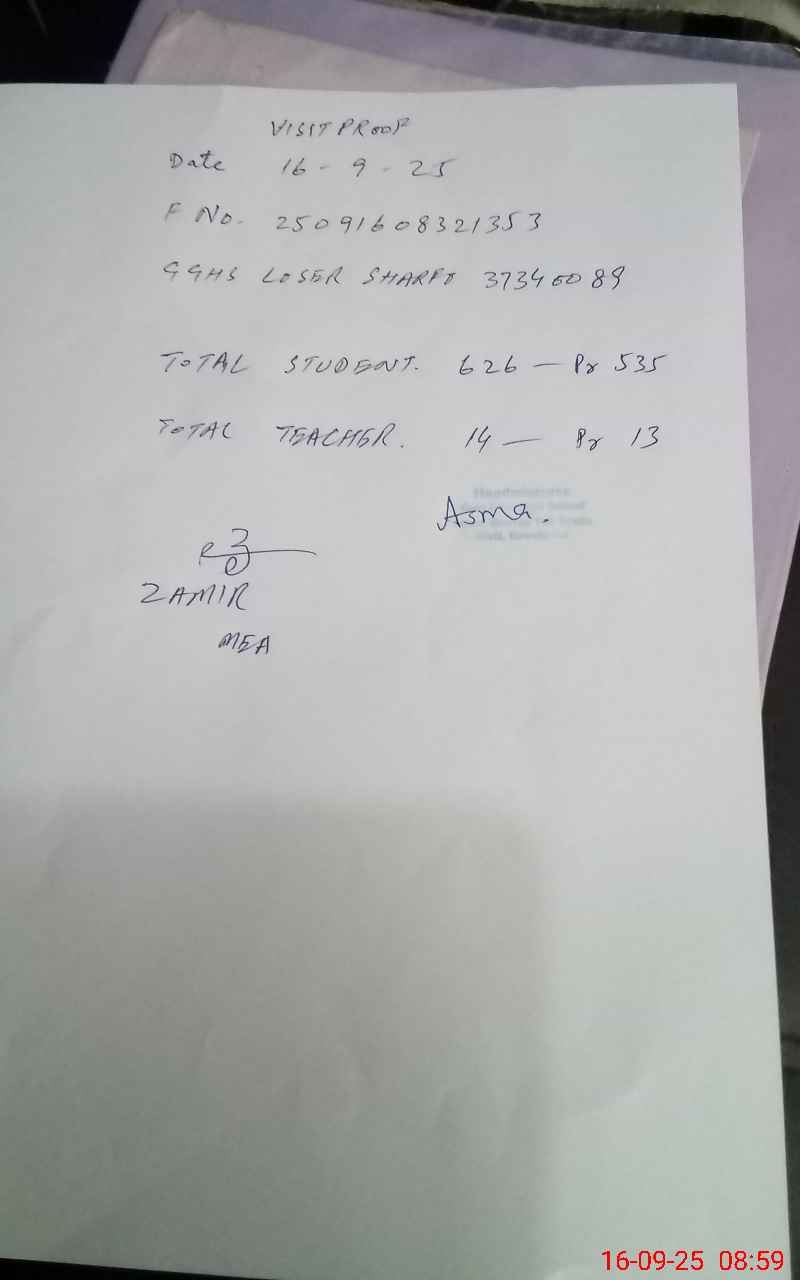 VISIT PROOF
Date 16 - 9 - 25
F No. 25091608321353
GGHS LOSER SHARFO 37340089
TOTAL STUDENT. 626 — Pr 535
TOTAL TEACHER. 14 — Pr 13
Headmistress
Asma.
ZAMIR
MEA
16-09-25 08:59